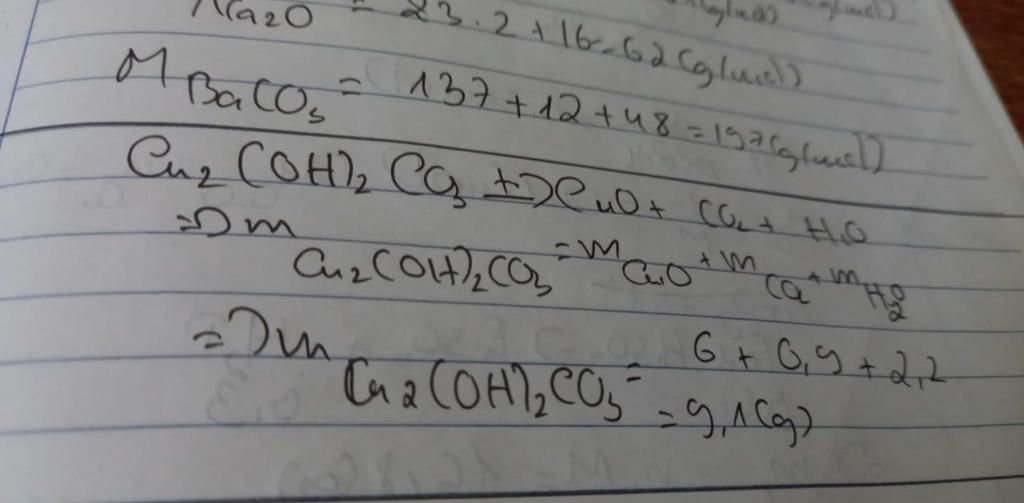 Na2O = 23.2+16=62(g/mol)
M BaCO3 = 137+12+48=197(g/mol)
Cu2(OH)2CO3 → CuO + CO2 + H2O
=> m Cu2(OH)2CO3 = m CuO + m CO2 + m H2O
=> m Cu2(OH)2CO3 = 6 + 0,9 + 2,2
= 9,1(g)